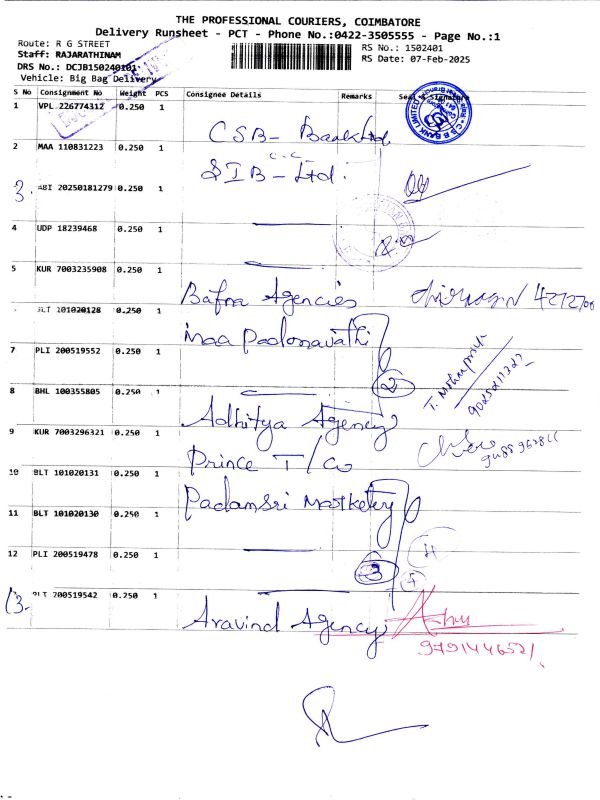 THE PROFESSIONAL COURIERS, COIMBATORE
Delivery Runsheet - PCT - Phone No.:0422-3505555 - Page No.:1
Route: R G STREET
RS No.: 1502401
Staff: RAJARATHINAM
RS Date: 07-Feb-2025
DRS No.: DCJB150240101
Vehicle: Big Bag Delivery
S No Consignment No Weight PCS Consignee Details Remarks Seal & Signature
1 VPL 226774312 0.250 1 CSB- Bank Ltd
2 MAA 110831223 0.250 1 SIB - Ltd.
3. ABI 20250181279 0.250 1
4 UDP 18239468 0.250 1
5 KUR 7003235908 0.250 1 Bafna Agencies
BLT 101020128 0.250 1 Maa Padmavathi
7 PLI 200519552 0.250 1
2
8 BHL 100355805 0.250 1 Adhitya Agency
9 KUR 7003296321 0.250 1 Prince T/Co
10 BLT 101020131 0.250 1 Padamsri Markety
11 BLT 101020130 0.250 1
12 PLI 200519478 0.250 1
3
4
13. 200519542 0.250 1 Aravind Agency